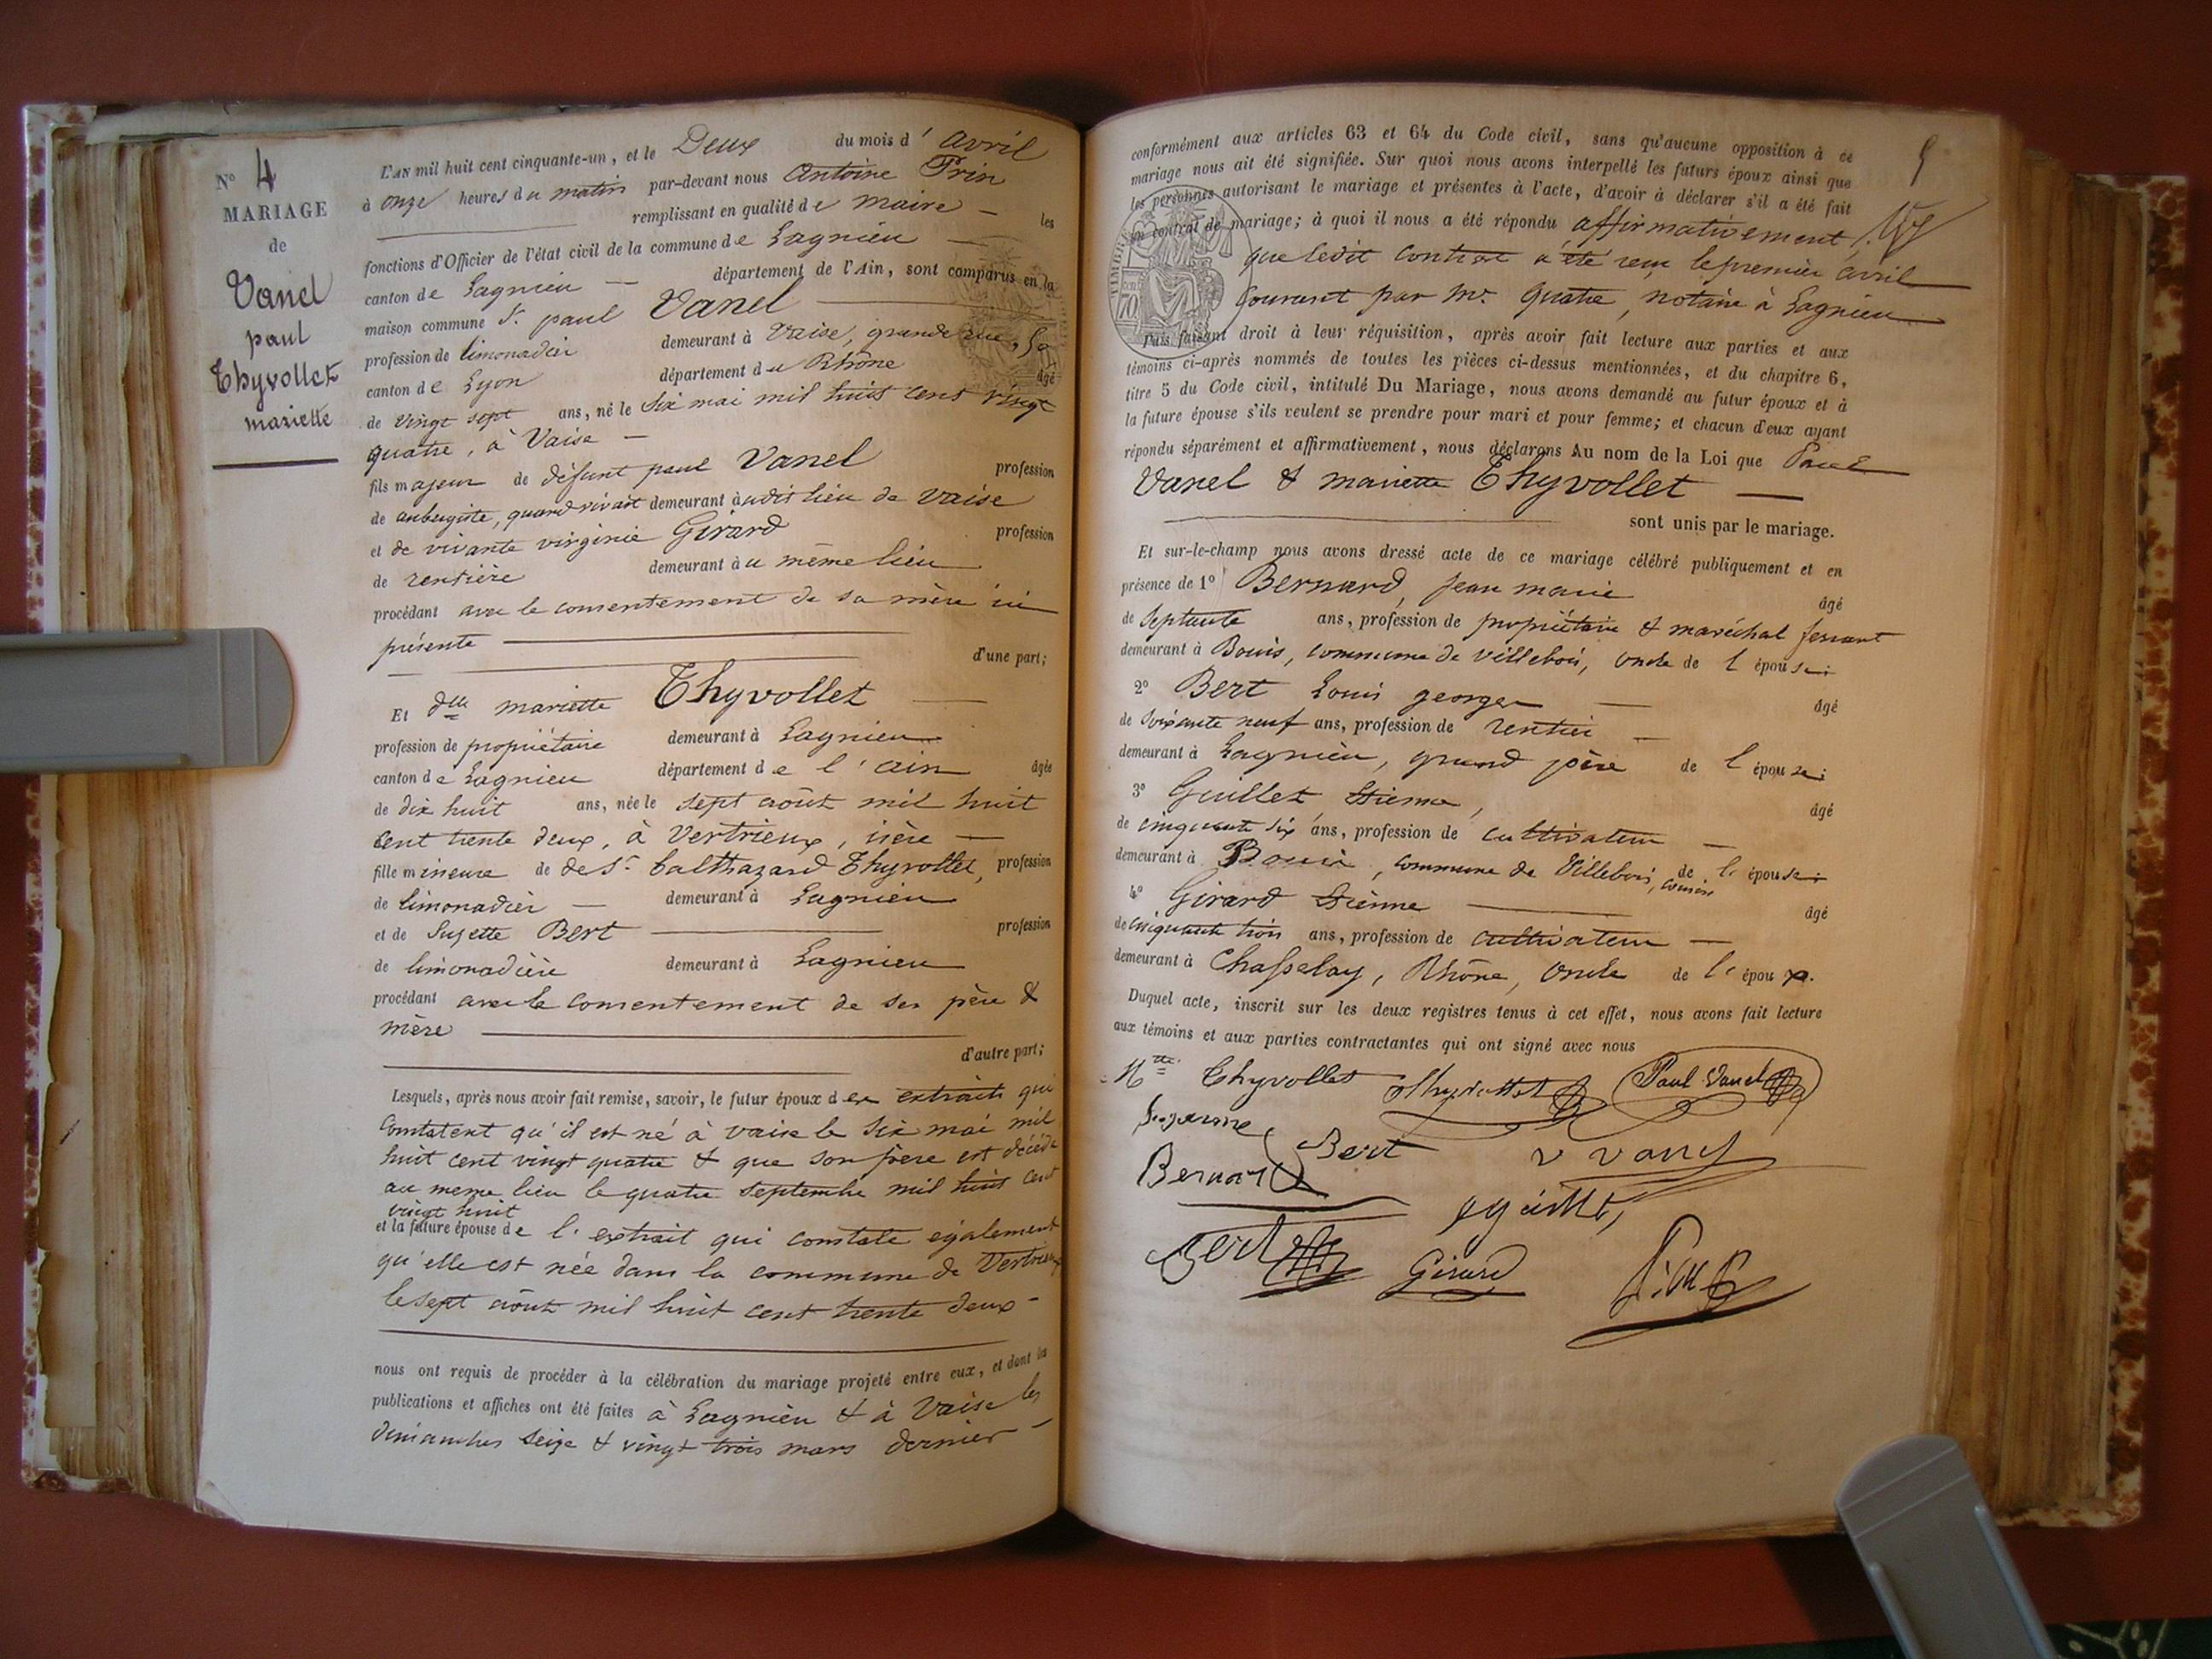 N° 4
MARIAGE
de
Vanel
paul
Thyvollet
mariette
L'AN mil huit cent cinquante-un, et le Deux du mois d'avril
à onze heures du matin par-devant nous Antoine Prin
remplissant en qualité de maire les
fonctions d'Officier de l'état civil de la commune de Lagnieu
canton de Lagnieu département de l'Ain, sont comparus en la
maison commune Sr paul Vanel
profession de limonadier demeurant à Vaise, grande rue,
canton de Lyon département du Rhône âgé
de vingt sept ans, né le six mai mil huit cent vingt
quatre, à Vaise
fils majeur de défunt paul Vanel profession
de aubergiste, quand vivait demeurant audit lieu de vaise
et de vivante virginie Girard profession
de rentière demeurant au même lieu
procédant avec le consentement de sa mère ici
présente
d'une part;
Et dlle mariette Thyvollet
profession de propriétaire demeurant à Lagnieu
canton de Lagnieu département de l'ain âgée
de dix huit ans, née le sept août mil huit
cent trente deux, à Vertrieux, isère
fille mineure de de Sr balthazard Thyvollet, profession
de limonadier demeurant à Lagnieu
et de Suzette Bert profession
de limonadière demeurant à Lagnieu
procédant avec le consentement de ses père &
mère
d'autre part;
Lesquels, après nous avoir fait remise, savoir, le futur époux des extraits qui
constatent qu'il est né à vaise le six mai mil
huit cent vingt quatre & que son père est décédé
au meme lieu le quatre septembre mil huit cent
vingt huit
et la future épouse de l'extrait qui constate également
qu'elle est née dans la commune de Vertrieux
le sept août mil huit cent trente deux
nous ont requis de procéder à la célébration du mariage projeté entre eux, et dont la
publications et affiches ont été faites à Lagnieu & à Vaise les
dimanches seize & vingt trois mars dernier
5
conformément aux articles 63 et 64 du Code civil, sans qu'aucune opposition à ce
mariage nous ait été signifiée. Sur quoi nous avons interpellé les futurs époux ainsi que
les personnes autorisant le mariage et présentes à l'acte, d'avoir à déclarer s'il a été fait
un contrat de mariage; à quoi il nous a été répondu affirmativement,
que ledit contrat a été reçu le premier avril
courant par Me quatre, notaire à Lagnieu
TIMBRE
70
Puis faisant droit à leur réquisition, après avoir fait lecture aux parties et aux
témoins ci-après nommés de toutes les pièces ci-dessus mentionnées, et du chapitre 6,
titre 5 du Code civil, intitulé Du Mariage, nous avons demandé au futur époux et à
la future épouse s'ils veulent se prendre pour mari et pour femme; et chacun d'eux ayant
répondu séparément et affirmativement, nous déclarons Au nom de la Loi que Paul
Vanel & mariette Thyvollet
sont unis par le mariage.
Et sur-le-champ nous avons dressé acte de ce mariage célébré publiquement et en
présence de 1° Bernard, jean marie âgé
de septante ans, profession de propriétaire & maréchal ferrant
demeurant à Bouis, commune de villebois, oncle de l'épouse;
2° Bert Louis georges âgé
de soixante neuf ans, profession de rentier
demeurant à Lagnieu, grand père de l'épouse;
3° Guillet Etienne, âgé
de cinquante six ans, profession de cultivateur
demeurant à Bouis, commune de Villebois, cousin de l'épouse;
4° Girard Etienne âgé
de cinquante trois ans, profession de cultivateur
demeurant à Chasselay, Rhône, oncle de l'époux.
Duquel acte, inscrit sur les deux registres tenus à cet effet, nous avons fait lecture
aux témoins et aux parties contractantes qui ont signé avec nous
Mtte Thyvollet Thyvollet Paul Vanel
Bert
Bernard v vanel
Bert Girard